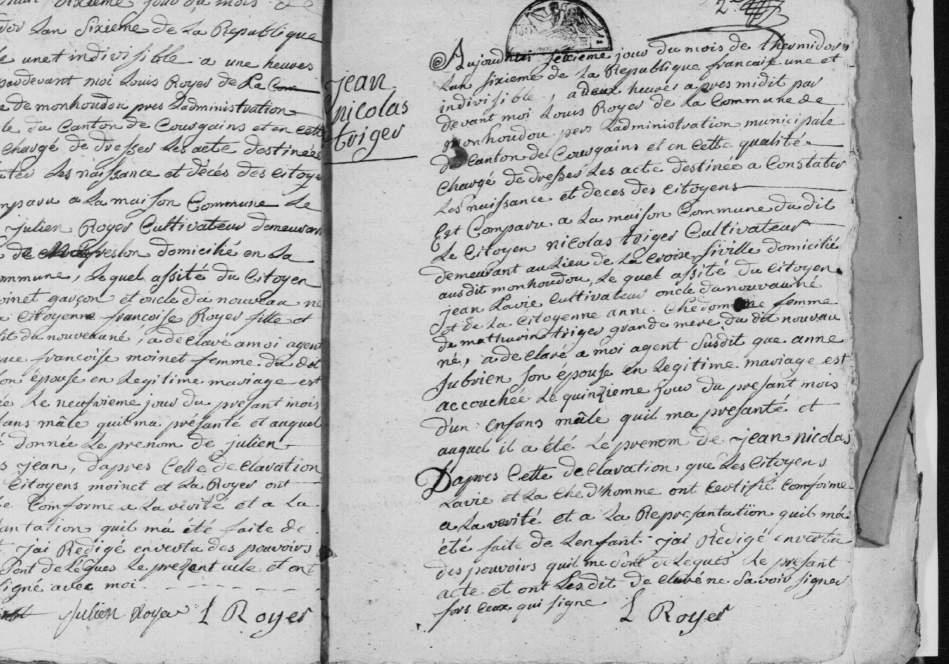 sixieme jour du mois
Lan Sixieme de La Republique
une et indivisible a une heures
pardevant moi Louis Royer de La Com
de monhoudou pres Ladministration
du Canton de Courgains et en cette
Chargé de dresser Les acte destinées
Les naissance et décés des Citoye
Comparu a La maison Commune Le
julien Royer Cultivateur demeuran
domicilié en La
Commune, Lequel assité du Citoyen
moinet garçon et oncle du nouveau né
Citoyenne françoise Royer fille et
du nouveauné, a declaré a moi agent
francoise moinet femme du dit
son épouse en Legitime mariage est
Le neufvieme jour du present mois
enfans mâle quil ma présanté et auquel
donnée Le prenom de julien
jean, dapres Cette declaration
Citoyens moinet et La Royer ont
Comforme a La vérité et a La
quil má été faite de
jai Rédigé en vertu des pouvoirs
Léques Le présent acte et ont
signé avec moi
julien Royer L Royer
jean
nicolas
triger
2.
Aujourdhui seizieme jour du mois de thermidor
Lan sixieme de La Republique francaise une et
indivisible, a deux heures apres midit par
devant moi Louis Royer de La Commune de
monhoudou pres Ladministration municipale
du Canton de Courgains et en Cette qualité
Chargé de dresser Les acte destinée a Constater
Les naissance et deces des Citoyens
Est Comparu a La maison Commune du dit
Le Citoyen nicolas triger Cultivateur
demeurant au Lieu de La Croix domicilié
audit monhoudou, Le quel assité du Citoyen
jean Lavie Cultivateur oncle du nouveauné
et de La Citoyenne anne Chedomme femme
de mathurin triger grande mere du dit nouveau
né, a declaré a moi agent Susdit que anne
Jubrien Son épouse en Legitime mariage est
accouchée Le quinzieme jour du présant mois
d'un enfans mâle quil ma présanté et
auquel il a été Le prenom de jean nicolas
Dapres Cette declaration, que Les Citoyens
Lavie et La Chedhomme ont Certifié Comforme
a La verité et a La Représantation quil má
été faite de Lenfant. jai rédigé en vertu
des pouvoirs quil me sont deLéqués Le présant
acte et ont Lesdit declaré ne Savoir signer
fors Ceux qui signe L Royer